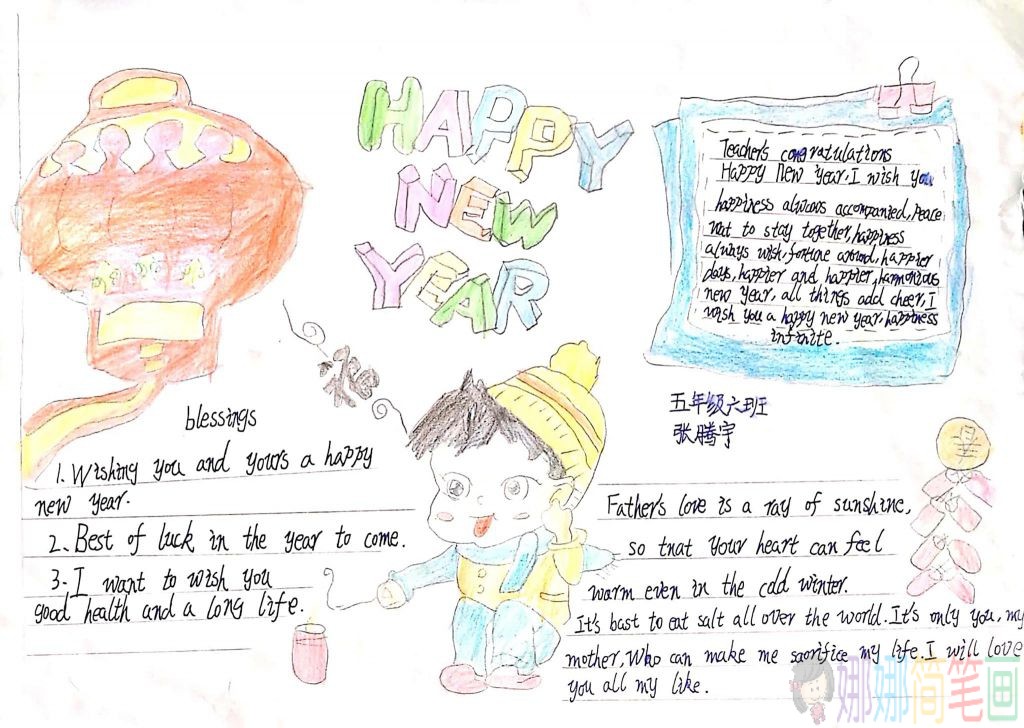 HAPPY
NEW
YEAR
Teacher's congratulations
Happy New Year, I wish you
happiness always accompanied, Peace
not to stay together, happiness
always wish, fortune around, happier
days, happier and happier, harmonious
new year, all things add cheer, I
wish you a happy new year, happiness
infinite.
五年级六班
张腾宇
blessings
1. Wishing you and yours a happy
new year.
2. Best of luck in the year to come.
3. I want to wish you
good health and a long life.
Father's love is a ray of sunshine,
so tnat your heart can feel
warm even in the cdd winter.
It's bast to eat salt all over the world. It's only you, my
mother, Who can make me sacrifice my life. I will love
you all my like.
娜娜简笔画